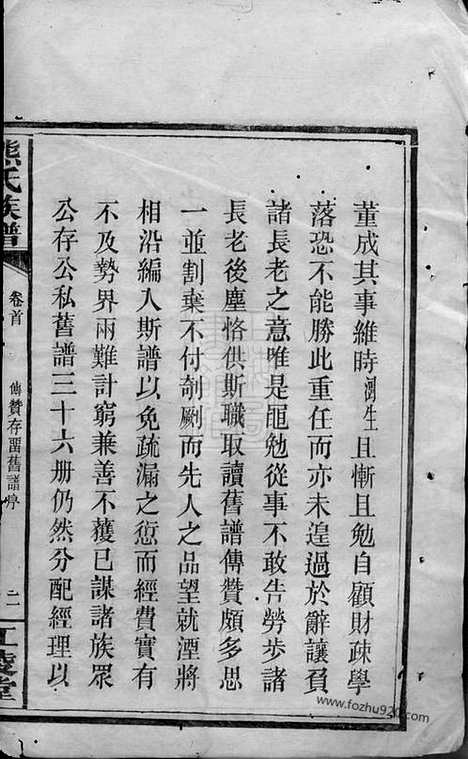 董成其事維時澍生且慚且勉自顧財疎學
落恐不能勝此重任而亦未遑過於辭讓負
諸長老之意唯是黽勉從事不敢告勞步諸
長老後塵恪供斯職取讀舊譜傳贊頗多思
一並割棄不付剞劂而先人之品望就湮將
相沿編入斯譜以免疏漏之愆而經費實有
不及勢界兩難計窮兼善不獲已謀諸族眾
公存公私舊譜三十六册仍然分配經理以
熊氏族譜
卷首
傳贊存畱舊譜序
二
江陵堂
www.fozhu920.com